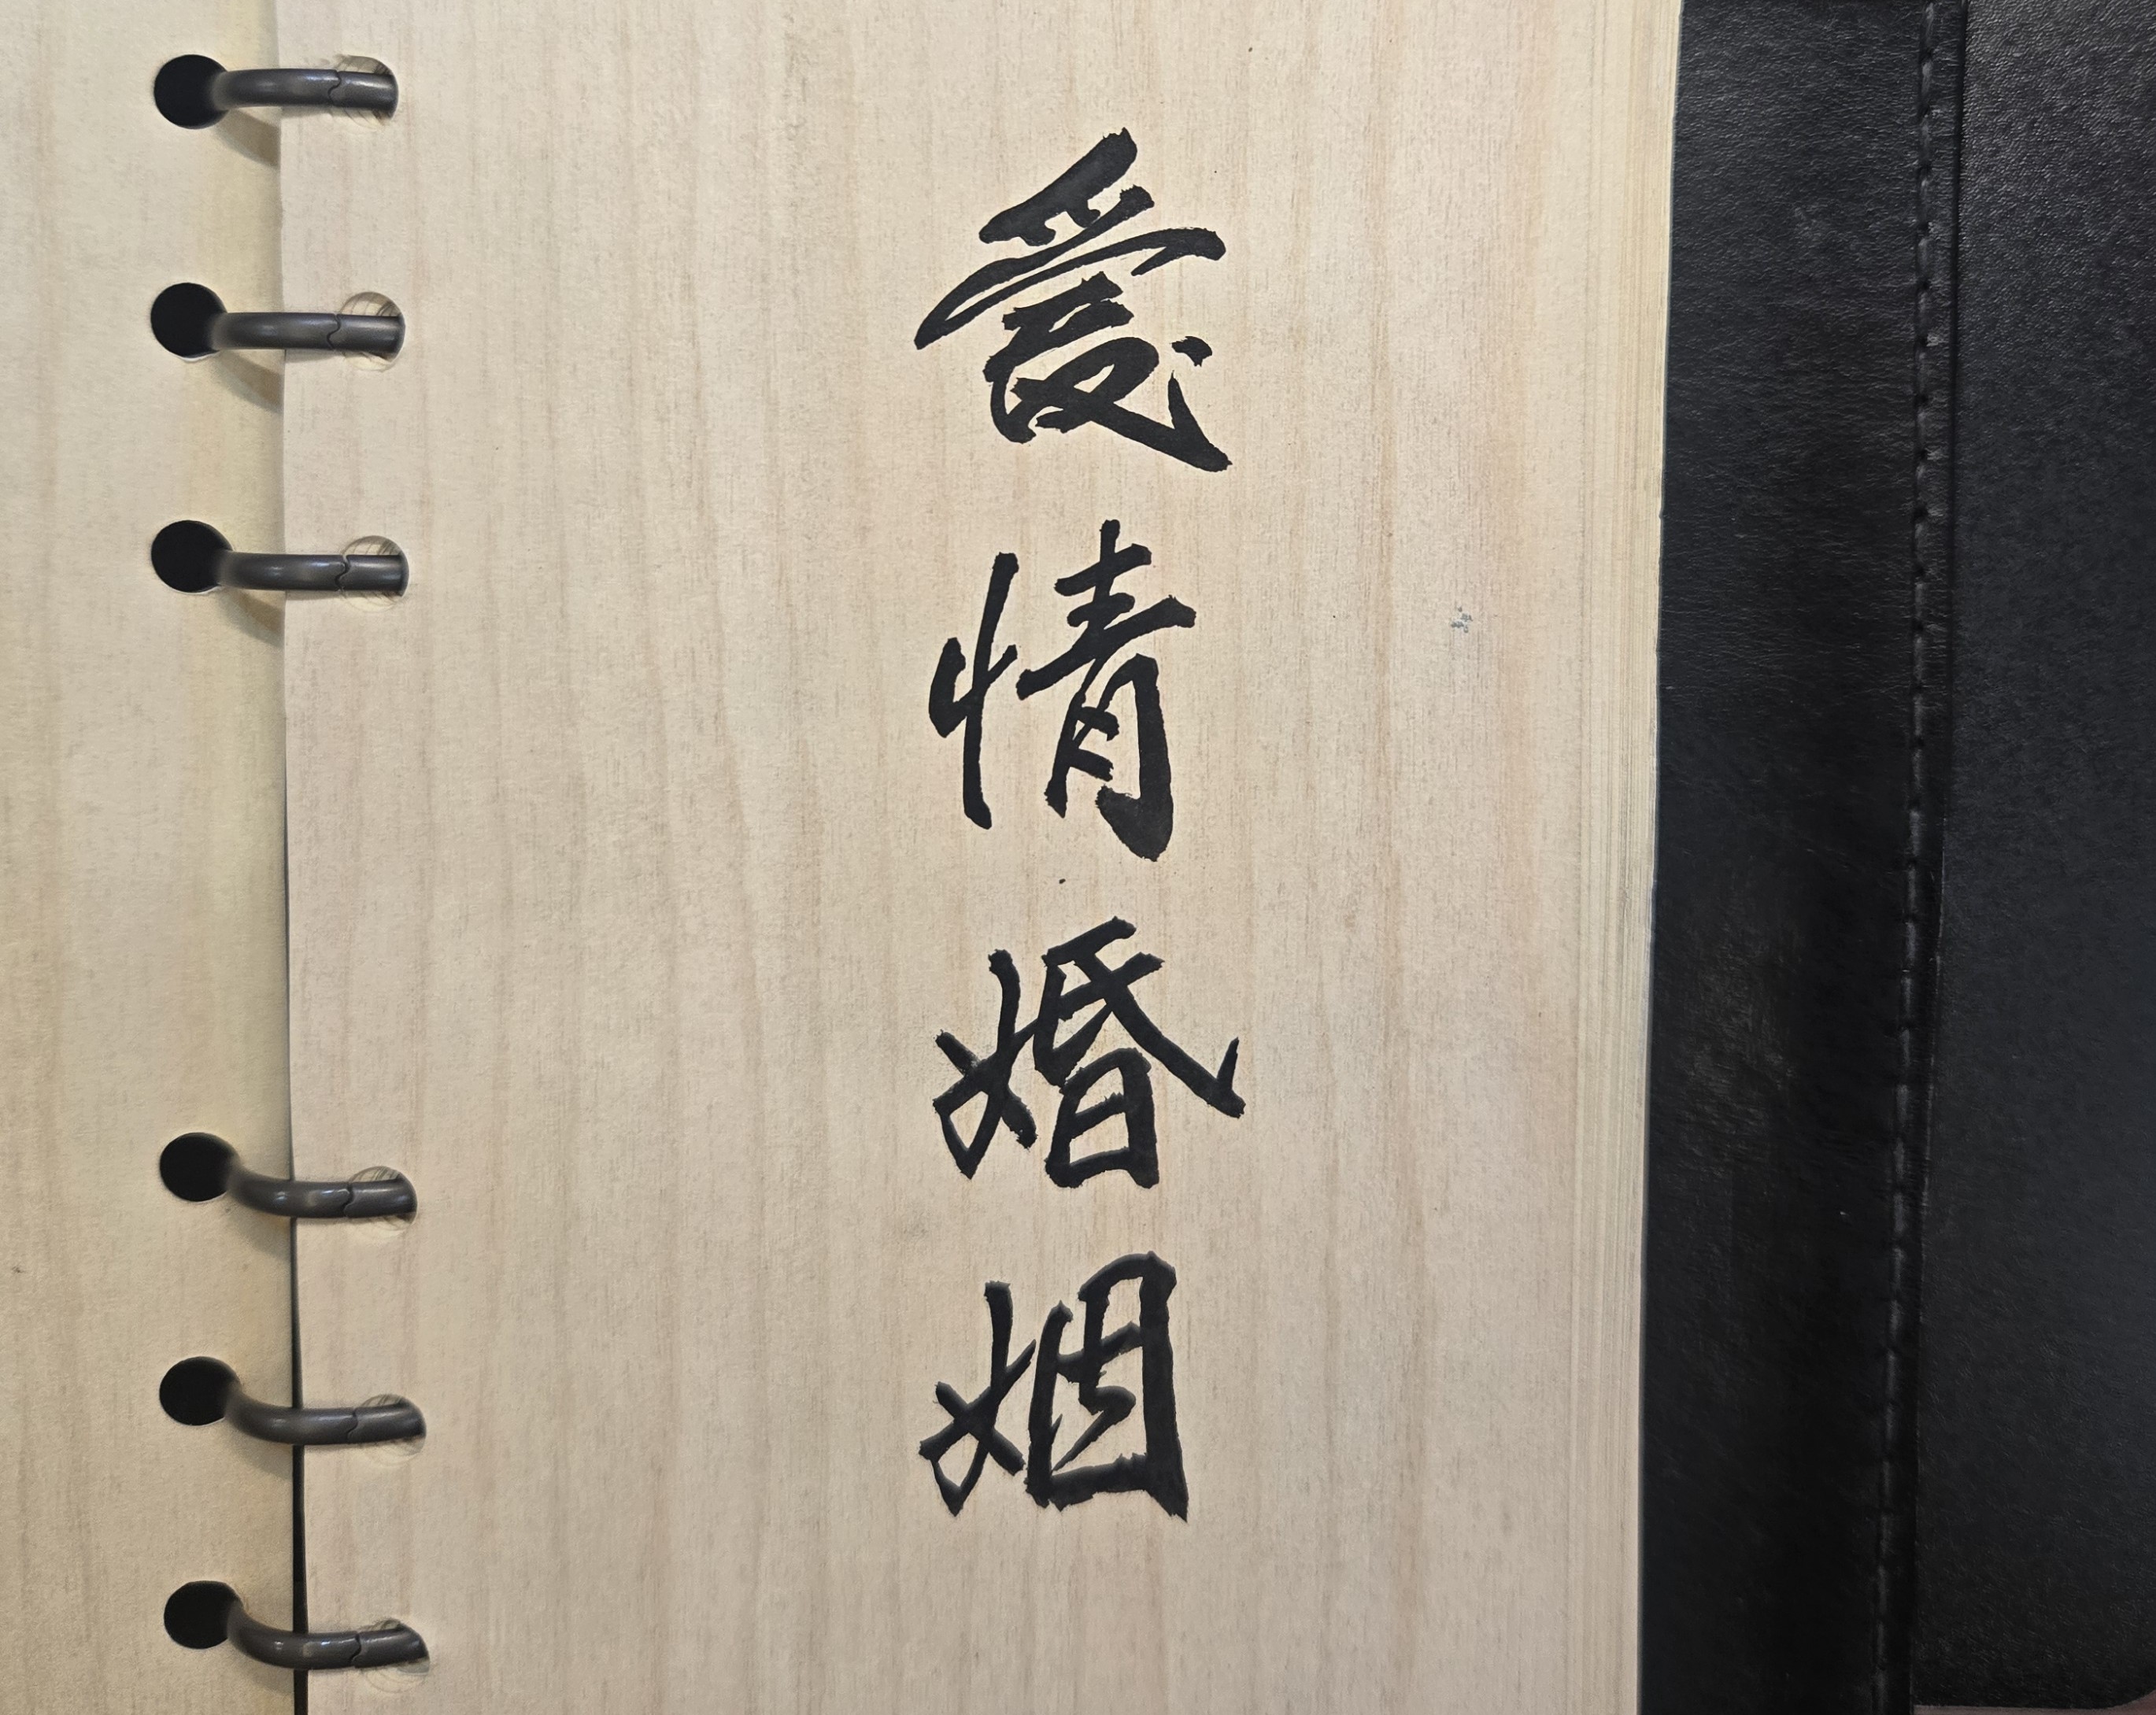 愛情婚姻